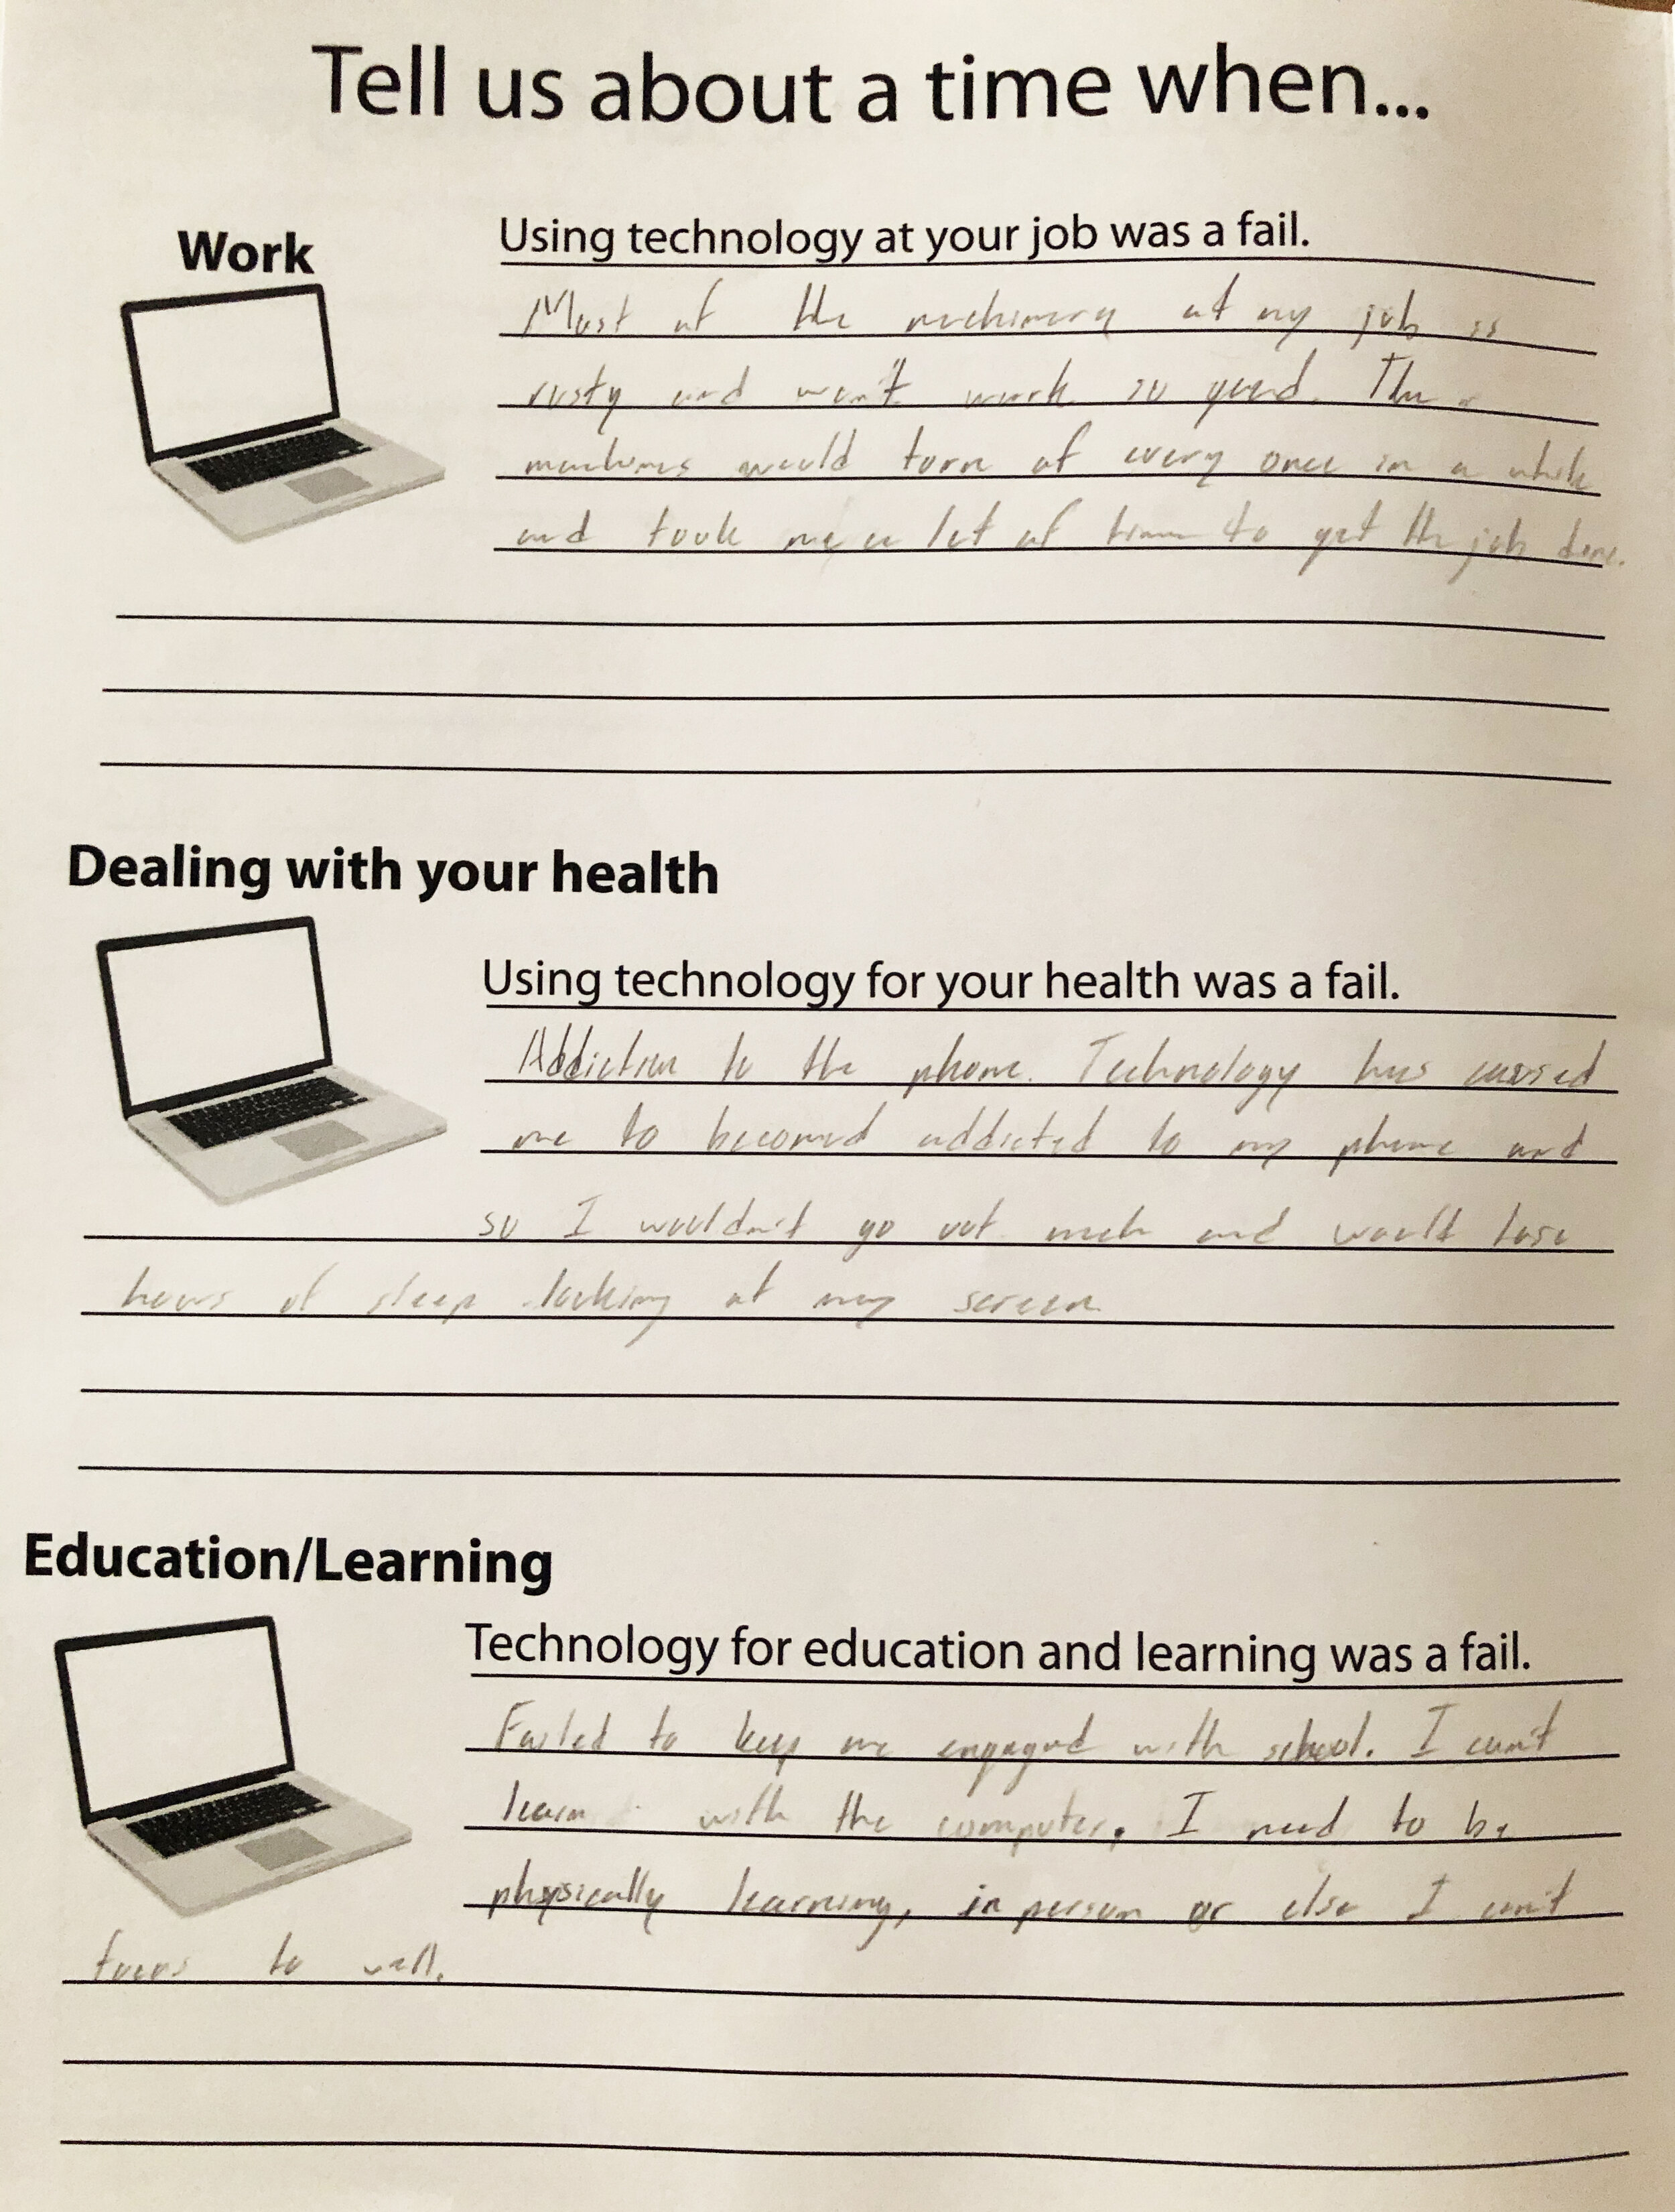 Tell us about a time when...
Work
Using technology at your job was a fail.
Most of the machinery at my job is
rusty and won't work so good. The
machines would torn of every once in a while
and took me a lot of time to get the job done.
Dealing with your health
Using technology for your health was a fail.
Addiction to the phone. Technology has caused
me to becomed addicted to my phone and
so I wouldn't go out much and would lose
hours of sleep looking at my screen
Education/Learning
Technology for education and learning was a fail.
Failed to keep me engaged with school. I can't
learn with the computer, I need to be
physically learning, in person or else I can't
focus to well.